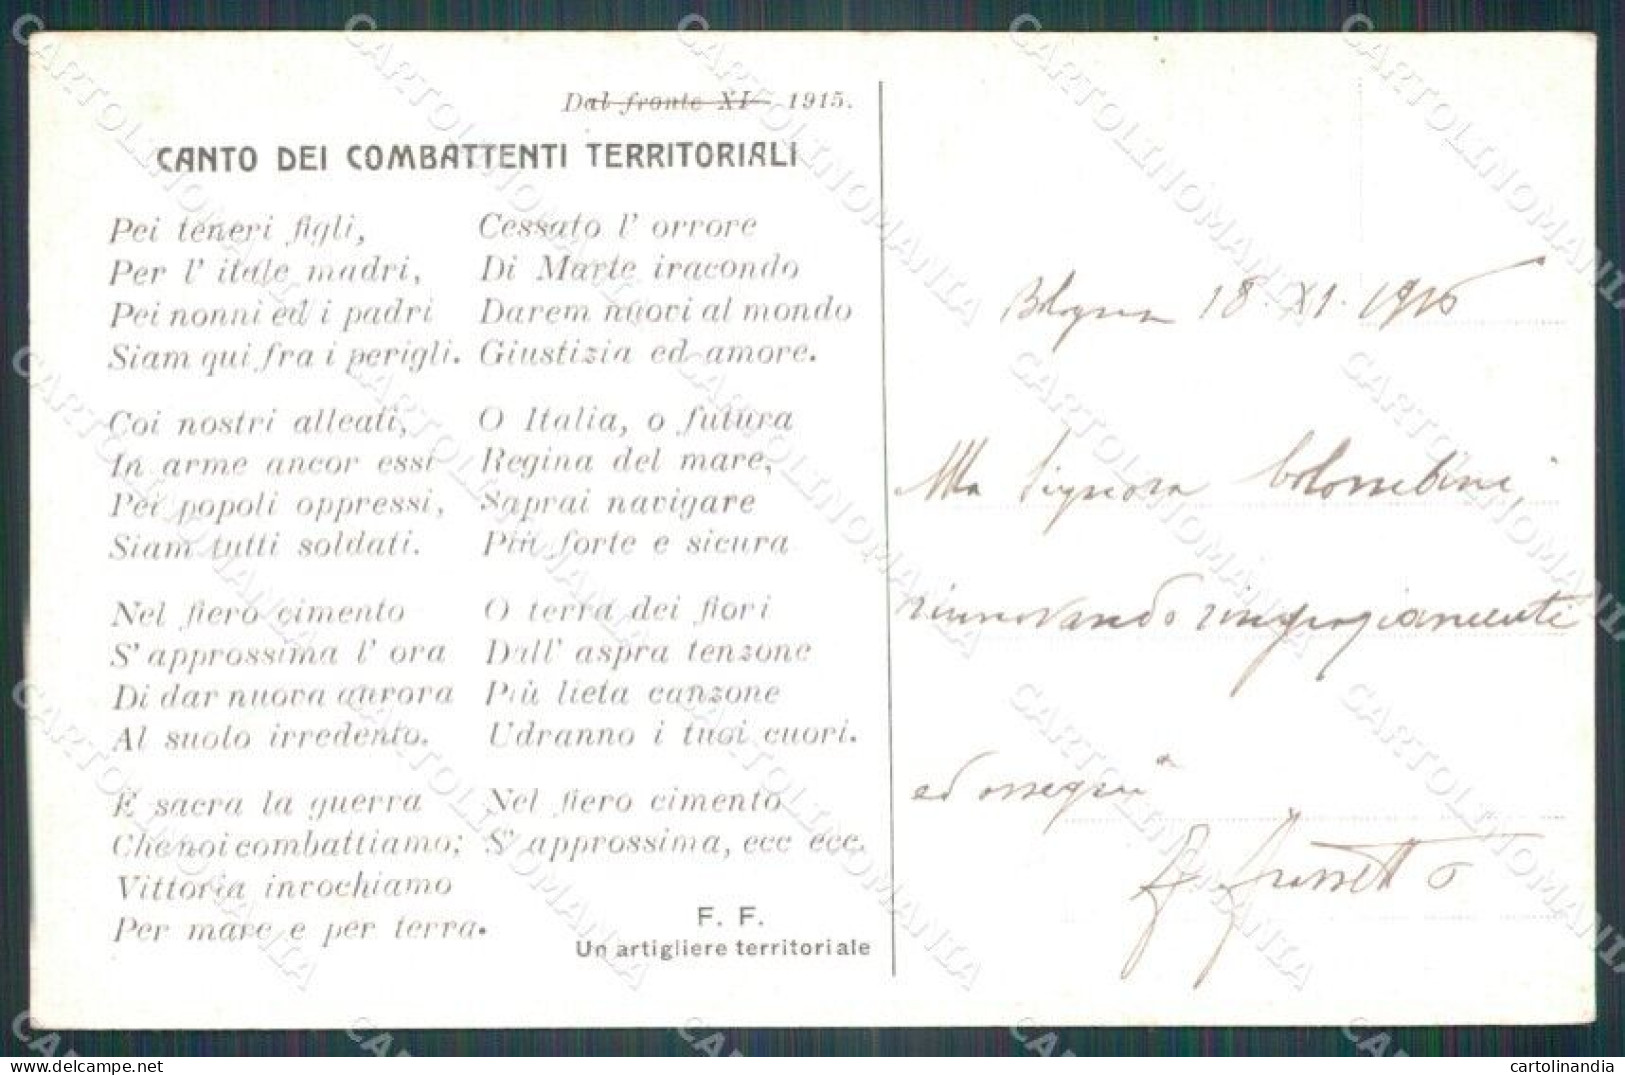 Dal fronte XI 1915.
CANTO DEI COMBATTENTI TERRITORIALI
Pei teneri figli,
Per l' itale madri,
Pei nonni ed i padri
Siam qui fra i perigli.
Coi nostri alleati,
In arme ancor essi
Pei popoli oppressi,
Siam tutti soldati.
Nel fiero cimento
S' approssima l' ora
Di dar nuova aurora
Al suolo irredento.
È sacra la guerra
Che noi combattiamo;
Vittoria invochiamo
Per mare e per terra.
Cessato l' orrore
Di Marte iracondo
Darem nuovi al mondo
Giustizia ed amore.
O Italia, o futura
Regina del mare,
Saprai navigare
Più forte e sicura
O terra dei fiori
Dall' aspra tenzone
Più lieta canzone
Udranno i tuoi cuori.
Nel fiero cimento
S' approssima, ecc ecc.
F. F.
Un artigliere territoriale
Bologna 18. XI. 1915
Alla Signora Colombini,
rinnovando ringraziamenti
ed ossequii
F. Frassetto
CARTOLINOMANIA
cartolinandia